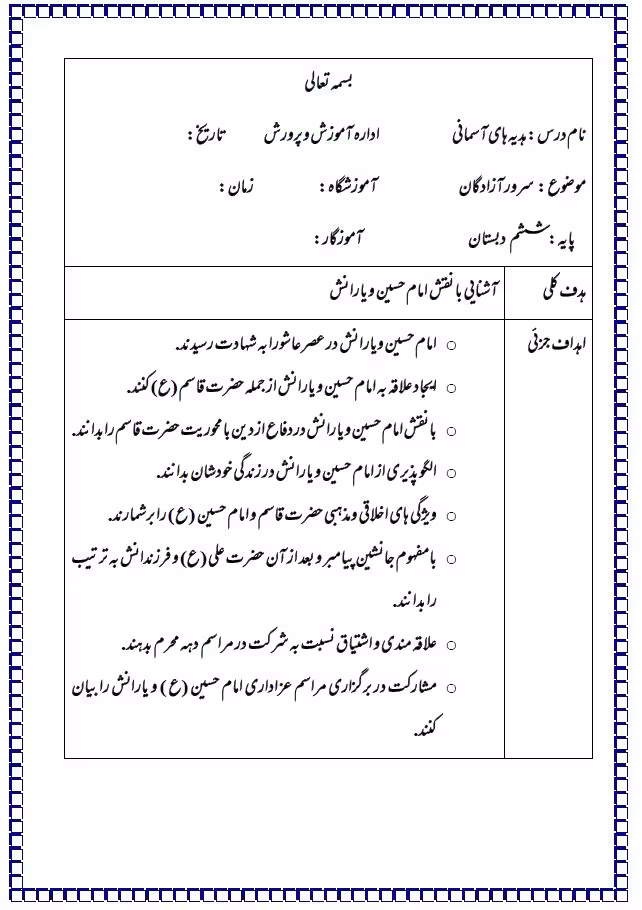 بسمه تعالی
نام درس : هدیه های آسمانی اداره آموزش و پرورش تاریخ :
موضوع : سرور آزادگان آموزشگاه : زمان :
پایه : ششم دبستان آموزگار :
هدف کلی آشنایی با نقش امام حسین و یارانش
اهداف جزئی ○ امام حسین و یارانش در عصر عاشورا به شهادت رسیدند.
○ ایجاد علاقه به امام حسین و یارانش از جمله حضرت قاسم (ع) کنند.
○ با نقش امام حسین و یارانش در دفاع از دین با محوریت حضرت قاسم را بدانند.
○ الگو پذیری از امام حسین و یارانش در زندگی خودشان بدانند.
○ ویژگی های اخلاقی و مذهبی حضرت قاسم و امام حسین (ع) را برشمارند.
○ با مفهوم جانشین پیامبر و بعد از آن حضرت علی (ع) و فرزندانش به ترتیب
را بدانند.
○ علاقه مندی و اشتیاق نسبت به شرکت در مراسم دهه محرم بدهند.
○ مشارکت در برگزاری مراسم عزاداری امام حسین (ع) و یارانش را بیان
کنند.